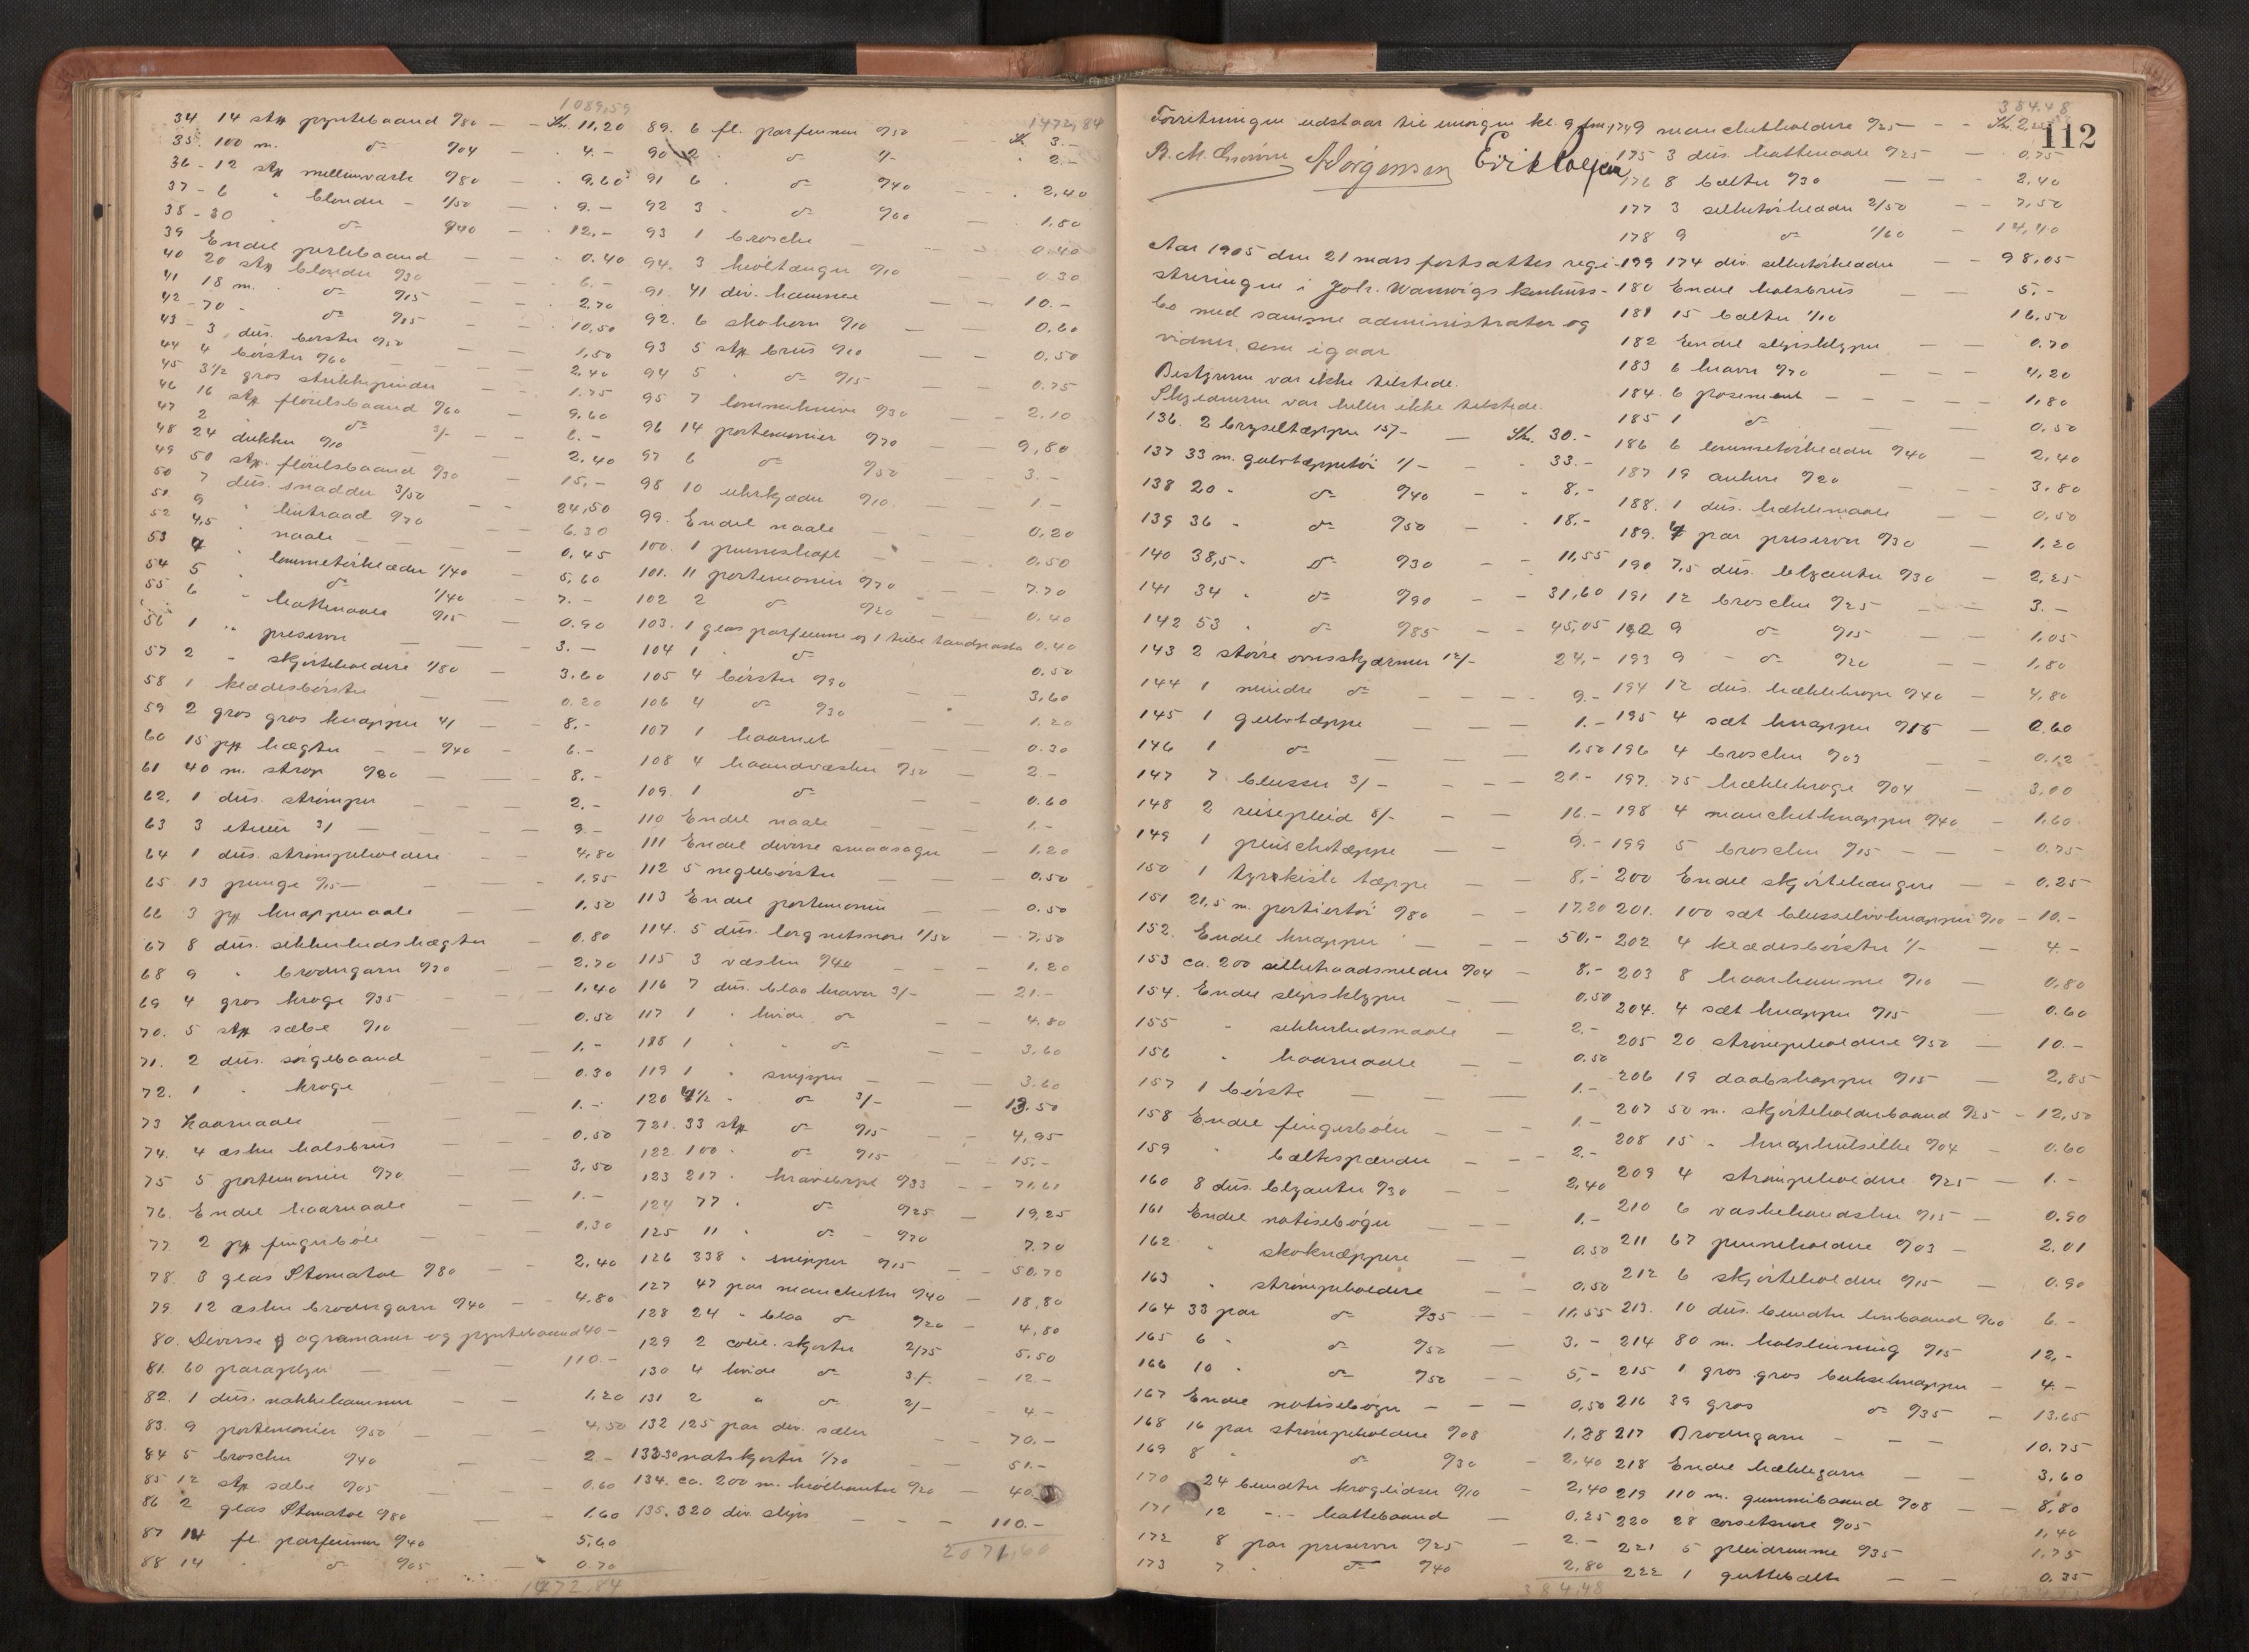 1089,59
34 14 stk pyntebaand 0/80 — Kr. 11,20
35 100 m. do 0/04 — 4.-
36 - 12 stk mellemværk 0/80 — 9,60
37 - 6 " blonder - 1/50 — 9.-
38 - 30 do 0/40 — 12.-
39 Endel perlebaand — 0.40
40 20 stk blonder 0/30 — 6.-
41 18 m. do 0/15 — 2.70
42 - 70 " do 0/15 — 10,50
43 - 3 dus. børster 0/50 — 1,50
44 4 børster 0/60 — 2.40
45 3 1/2 gros strikkepinder — 1.75
46 16 stk fløielsbaand 0/60 — 9.60
47 2 do 3/- — 6.-
48 24 dukker 0/10 — 2.40
49 50 stk. fløielsbaand 0/30 — 15,-
50 7 dus. snadder 3/50 — 24,50
51 9 " lintraad 0/70 — 6.30
52 4,5 " naale — 0,45
53 4 " lommetørklæder 1/40 — 5,60
54 5 " do 1/40 — 7.-
55 6 " hattenaale 0/15 — 0.90
56 1 " preserver — 3.-
57 2 " skjorteholdere 1/80 — 3.60
58 1 klædesbørste — 0.20
59 2 gros gros knapper 4/ — 8.-
60 15 pk hægter — 0/40 — 6.-
61 40 m. strop 0/20 — 8.-
62. 1 dus. strømper — 2.-
63 3 etuier 3/ — 9.-
64 1 dus. strømpeholdere — 4,80
65 13 punge 0/15 — 1.95
66 3 pk knappenaale — 1,50
67 8 dus. sikkerhedshægter — 0.80
68 9 " brodergarn 0/30 — 2.70
69 4 gros kroge 0/35 — 1,40
70. 5 stk sæbe 0/10 — 0.50
71. 2 dus. sørgebaand — 1.-
72. 1 " kroge — 0.30
73 Haarnaale — 1.-
74. 4 æsker halsbrus — 0.50
75 5 portemonier 0/70 — 3,50
76. Endel haarnaale — 1.-
77 2 pk fingerbøle — 0,30
78. 3 glas Stomatol 0/80 — 2,40
79. 12 æsker brodergarn 0/40 — 4.80
80. Diverse agramaner og pyntebaand 40 —
81. 60 paraplyer — 110.-
82. 1 dus. nakkekammer — 1,20
83. 9 portemonier 0/50 — 4,50
84 5 broscher 0/40 — 2.-
85 12 stk sæbe 0/05 — 0.60
86 2 glas Stomatol 0/80 — 1.60
87 14 fl. parfeumer 0/40 5,60
88 14 " do 0/05 — 0.70
1472,84
1472,84
89. 6 fl. parfeumer 0/50 Kr. 3.-
90 2 " do 1/- 2.-
91 6 " do 0/40 — 2,40
92 3 " do 0/60 — 1,80
93 1 brosche — 0.40
94. 3 krøltænger 0/10 — 0.30
91. 41 div. kammer — 10.-
92. 6 skohorn 0/10 — 0.60
93 5 stk brus 0/10 — 0,50
94 5 " do 0/15 — 0.75
95 7 lommeknive 0/30 — 2.10
96 14 portemonier 0/70 — 9,80
97 6 do 0/50 — 3.-
98 10 uhrkjæder 0/10 — 1.-
99. Endel naale — 0,20
100. 1 penneskaft — 0,50
101. 11 portemonier 0/70 — 7.70
102 2 do 0/20 — 0,40
103. 1 glas parfeume og 1 tube tandpasta 0.40
104 1 " do 0.50
105 4 børster 0/90 — 3,60
106 4 do 0/30 — 1,20
107 1 haarnet — 0.30
108 4 haandvæsker 0/50 — 2.-
109. 1 do — 0.60
110 Endel naale — 1.-
111 Endel diverse smaasager 1,20
112 5 neglebørster — 0.50
113 Endel portemonier — 0.50
114. 5 dus. lorgnetsnore 1/50 — 7,50
115 3 væsker 0/40 — 1.20
116 7 dus. blaa kraver 3/- — 21.-
117 1 " hvide do — 4.80
118 1 " " do — 3.60
119 1 " snipper — 3.60
120 4 1/2 " do 3/- — 13.50
121. 33 stk do 0/15 — 4,95
122 100 " do 0/15 — 15.-
123 217 " kravebryst 0/33 — 71,61
124 77 " do 0/25 — 19,25
125 11 " do 0/70 7.70
126 338 " snipper 0/15 — 50,70
127 47 par manchetter 0/40 — 18,80
128 24 " blaa do 0/20 — 4,80
129 2 coul. skjorter 2/75 5,50
130 4 hvide do 3/- — 12 -
131 2 " do 2/- — 4.-
132 125 par div. sæler — 70.-
133 30 natskjorter 1/70 — 51.-
134. ca. 200 m. krølkanter 0/20 — 40.-
135. 320 div. slips — 110.-
2071,60
Forretningen udstaar til imorgen kl. 9 fm.
Jørgensen
Aar 1905 den 21 mars fortsattes regi-
streringen i Joh. Wanvigs konkurs-
bo med samme administrator og
vidner som igaar
Bestyreren var ikke tilstede.
Skyldneren var heller ikke tilstede.
136. 2 brysseltæpper 15/- — Kr. 30.-
137 33 m. gulvtæppetøi 1/- — 33.-
138 20 - do 0/40 — 8.-
139 36 - do 0/50 — 18.-
140 38,5 - do 0/30 — 11,55
141 34 " do 0/90 — 31,60
142 53 " do 0/85 — 45,05
143 2 større ovnsskjærmer 12/- 24,-
144 1 mindre do — 9.-
145 1 gulvtæppe — 1.-
146 1 do — 1,50
147 7 bluser 3/- — 21.-
148 2 reisepleid 8/- — 16.-
149 1 pluschtæppe — 9.-
150 1 tyrkisk tæppe — 8.-
151 21,5 m. portiertøi 0/80 — 17.20
152. Endel knapper — 50,-
153 ca. 200 silketraadsneller 0/04 — 8.-
154. Endel slipsklyper — 0,50
155 " sikkerhedsnaale — 2.-
156 " haarnaale — 0.50
157 1 børste — 1.-
158 Endel fingerbøler — 1.-
159 " bæltespænder — 2.-
160 8 dus. blyanter 0/30 — 2,40
161 Endel notisebøger — 1.-
162 " skoknæppere — 0.50
163 " strømpeholdere — 0,50
164 33 par do 0/35 — 11,55
165 6 " do 0/50 — 3.-
166 10 " do 0/50 — 5,-
167 Endel notisebøger — 0,50
168 16 par strømpeholdere 0/08 1,28
169 8 " do 0/30 — 2,40
170 24 bundter kroglidser 0/10 — 2,40
171 12 -"- hattebaand — 0.25
172 8 par preserver 0/25 — 2.-
173 7 " do 0/40 2,80
384,48
384.48
112
174 9 manchetholdere 0/25 — Kr. 2,25
175 3 dus. hattenaale 0/25 — 0.75
176 8 bælter 0/30 — 2.40
177 3 silketørklæder 2/50 — 7,50
178 9 do 1/60 — 14,40
199 174 div. silketørklæder — 98,05
180 Endel halsbrus — 5.-
181 15 bælter 1/10 16,50
182 Endel slipsklyper — 0.70
183 6 kraver 0/70 — 4,20
184. 6 posement — 1,80
185 1 do — 0.50
186 6 lommetørklæder 0/40 — 2,40
187 19 ankere 0/20 — 3.80
188. 1 dus. hæklenaale — 0,50
189. 4 par preserver 0/30 — 1,20
190 7,5 dus. blyanter 0/30 — 2,25
191 12 broscher 0/25 — 3.-
192 9 do 0/15 — 1,05
193 9 - do 0/20 — 1,80
194 12 dus. hæklekroge 0/40 — 4,80
195 4 sæt knapper 0/15 — 0.60
196 4 broscher 0/03 — 0.12
197. 75 hæklekroge 0/04 — 3,00
198 4 manchetknapper 0/40 — 1.60
199 5 broscher 0/15 — 0.75
200 Endel skjortehængere — 0.25
201. 100 sæt bluselivknapper 0/10 — 10.-
202 4 klædesbørster 1/- — 4.-
203 8 haarkamme 0/10 — 0,80
204. 4 sæt knapper 0/15 — 0.60
205 20 strømpeholdere 0/50 — 10.-
206 19 daabshapper 0/15 — 2,85
207 50 m. skjorteholderbaand 0/25 — 12,50
208 15 " knaphulsilke 0/04 — 0.60
209 4 strømpeholdere 0/25 — 1.-
210 6 vaskehandsker 0/15 — 0.90
211 67 penneholdere 0/03 — 2,01
212 6 skjorteholdere 0/15 — 0.90
213. 10 dus. bundter linbaand 0/60 6.-
214 80 m. halslinning 0/15 12,-
215 1 gros gros bukseknapper — 4.-
216 39 gros do 0/35 — 13.65
217 Brodergarn — 10.75
218 Endel hæklegarn — 3,60
219 110 m. gummibaand 0/08 — 8,80
220 28 corsetsnore 0/05 1,40
221 5 pleidremme 0/35 1.75
222 1 guttebælte — 0.35